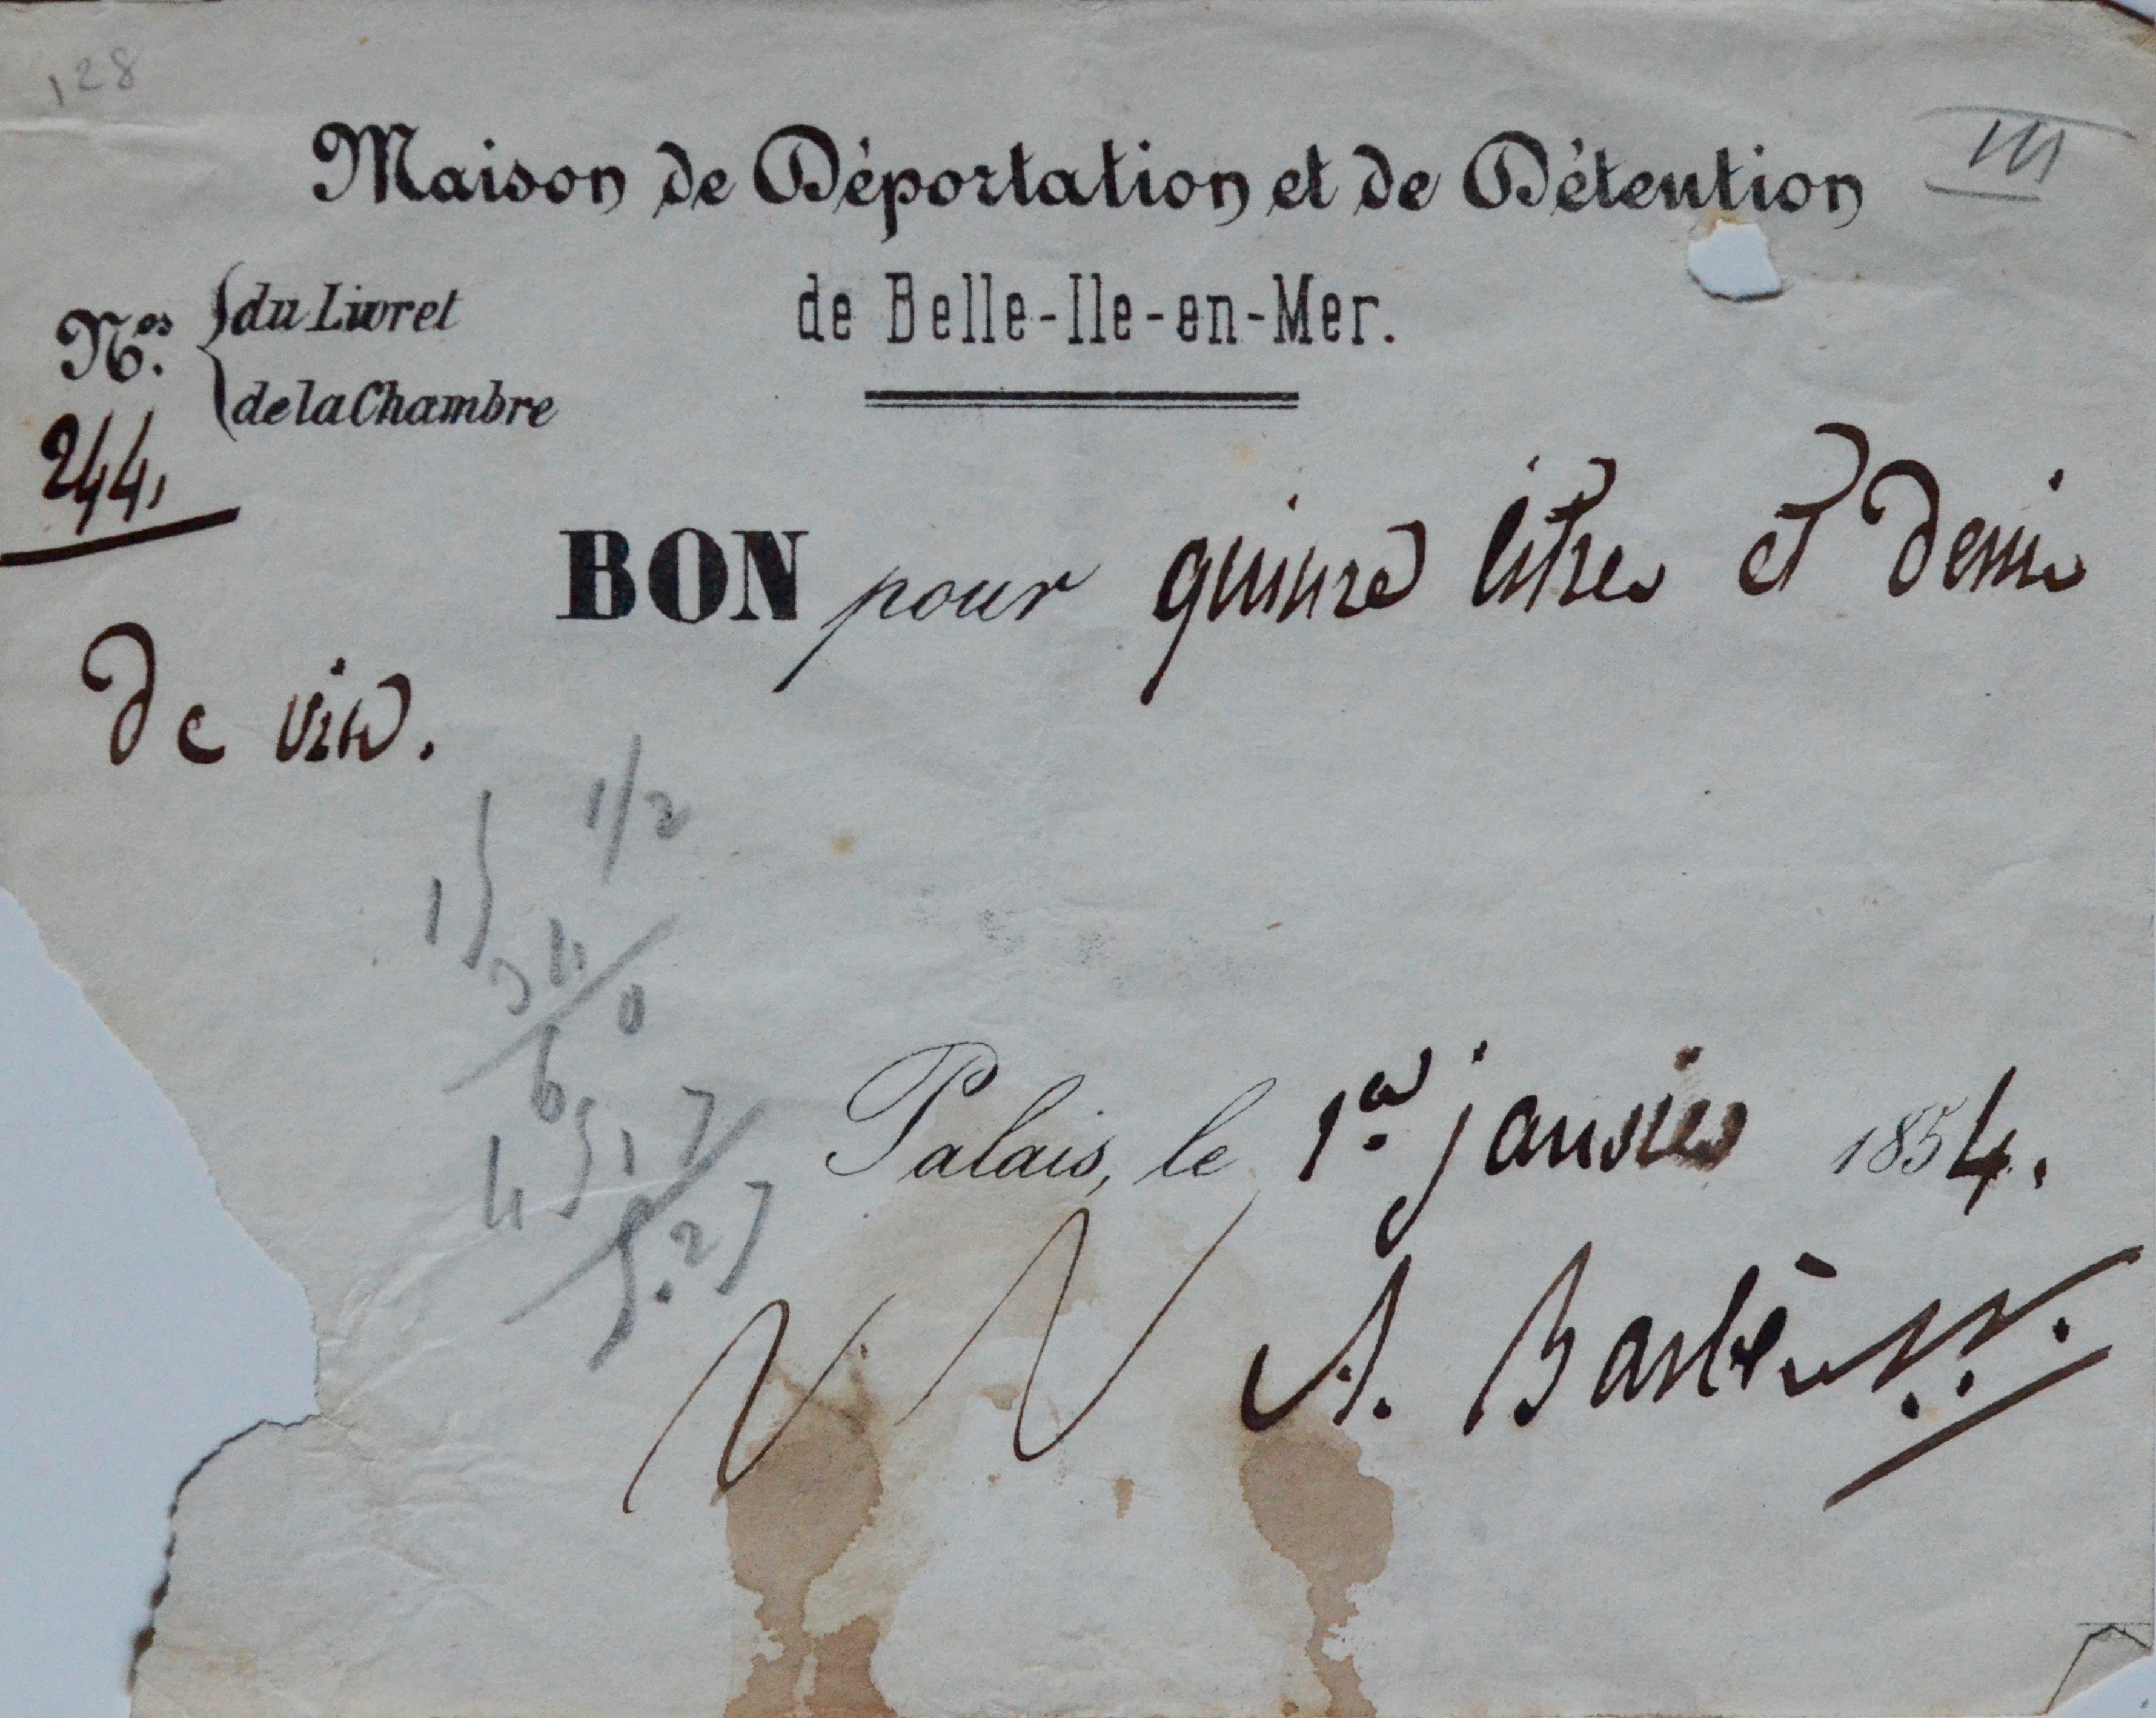 128
Maison de Déportation et de Détention
III
de Belle-Ile-en-Mer.
Nos. du Livret
de la Chambre
244,
BON pour quinze litres et demi
de vin.
1/2
15
Palais, le 1er janvier 1854.
A. Barbès